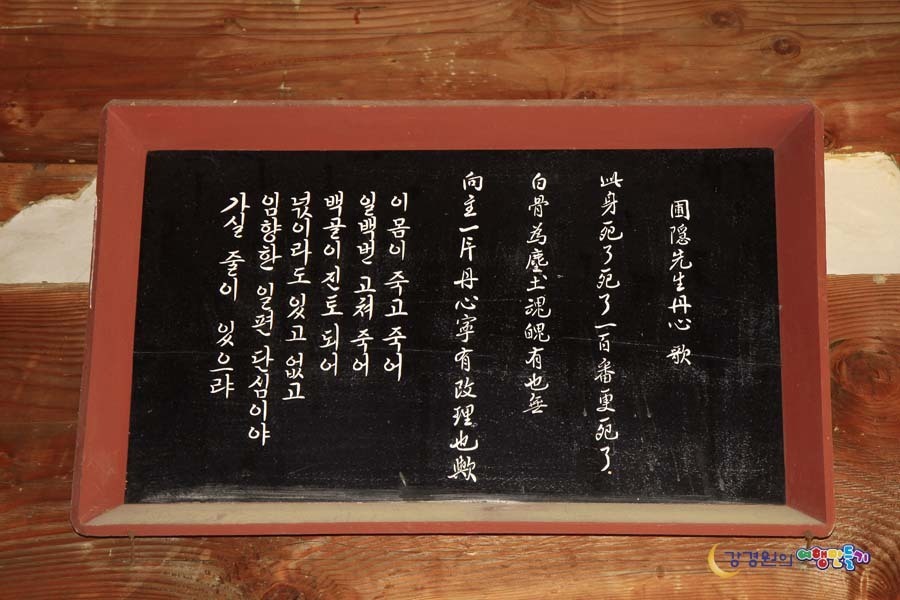 圃隱先生丹心歌
此身死了死了一百番更死了
白骨為塵土魂魄有也無
向主一片丹心寧有改理也歟
이 몸이 죽고 죽어
일백번 고쳐 죽어
백골이 진토 되어
넋이라도 있고 없고
임향한 일편 단심이야
가실 줄이 있으랴
강경원의 여행만들기